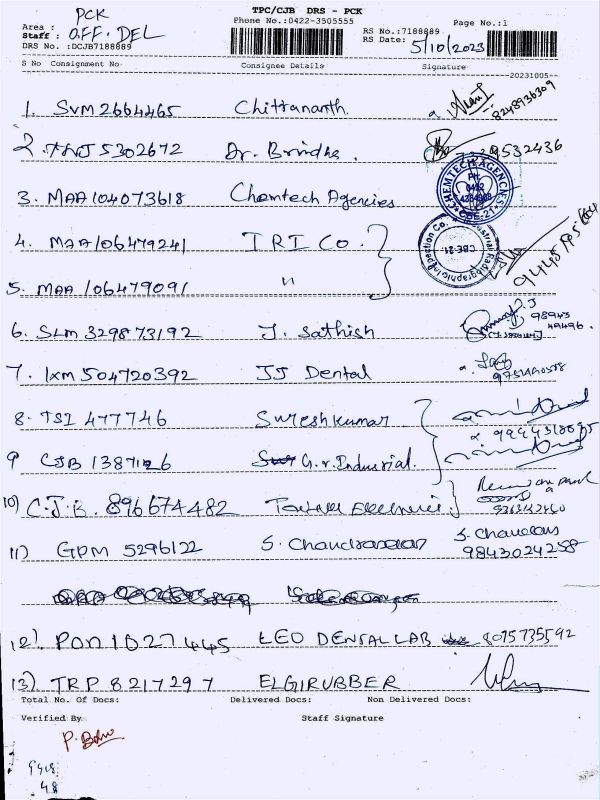 TPC/CJB DRS - PCK
Phone No.:0422-3505555
Page No.:1
Area : PCK
Staff : OFF. DEL
DRS No. :DCJB7188889
RS No.:7188889
RS Date: 5/10/2023
S No Consignment No Consignee Details Signature
20231005
1. SVM 2664465 Chittananth. 8248936309
2. TNJ 5302672 Dr. Brindha. 7339532436
3. MAA 104073618 Chemtech Agencies
CHEMTECH AGENCIES PH: 0422 CBE-27
4. MAA 106479241 I R I Co.
Industrial Radiographic Inspection Co. CBE-21
5. MAA 106479091 "
6. SLM 329873192 J. Sathish 98943 49496.
7. IXM 504720392 JJ Dental
8. TSI 477746 Sureshkumar
9 CJB 1387126 G.r. Industrial.
10) C.J.B. 896674482
11) GPM 5296122 S. Chandrasekar S. Chandras 9843024258
12). PON 1027445 LEO DENTAL LAB 8075735592
13). TRP 8217297 ELGIRUBBER
Total No. Of Docs: Delivered Docs: Non Delivered Docs:
Verified By Staff Signature
P. Babu